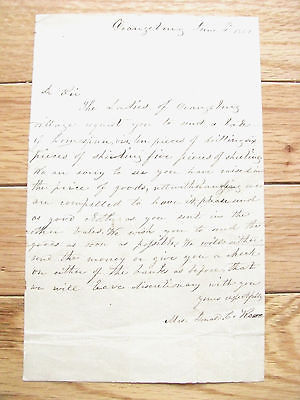 Orangeburg June
Dr Sir
The Ladies of Orangeburg
village request you to send a bale
of homespun, viz, ten pieces of
pieces of shirting five pieces of sheeting
We are sorry to see you have raised in
the price of goods, notwithstanding we
are compelled to have it, please send
as good as you sent in the
other bales. We wish you to send the
goods as soon as possible, We will either
send the money or give you a check
on either of the banks as before, that
we will leave discretionary with you
yours respectfully
Mrs. Donald